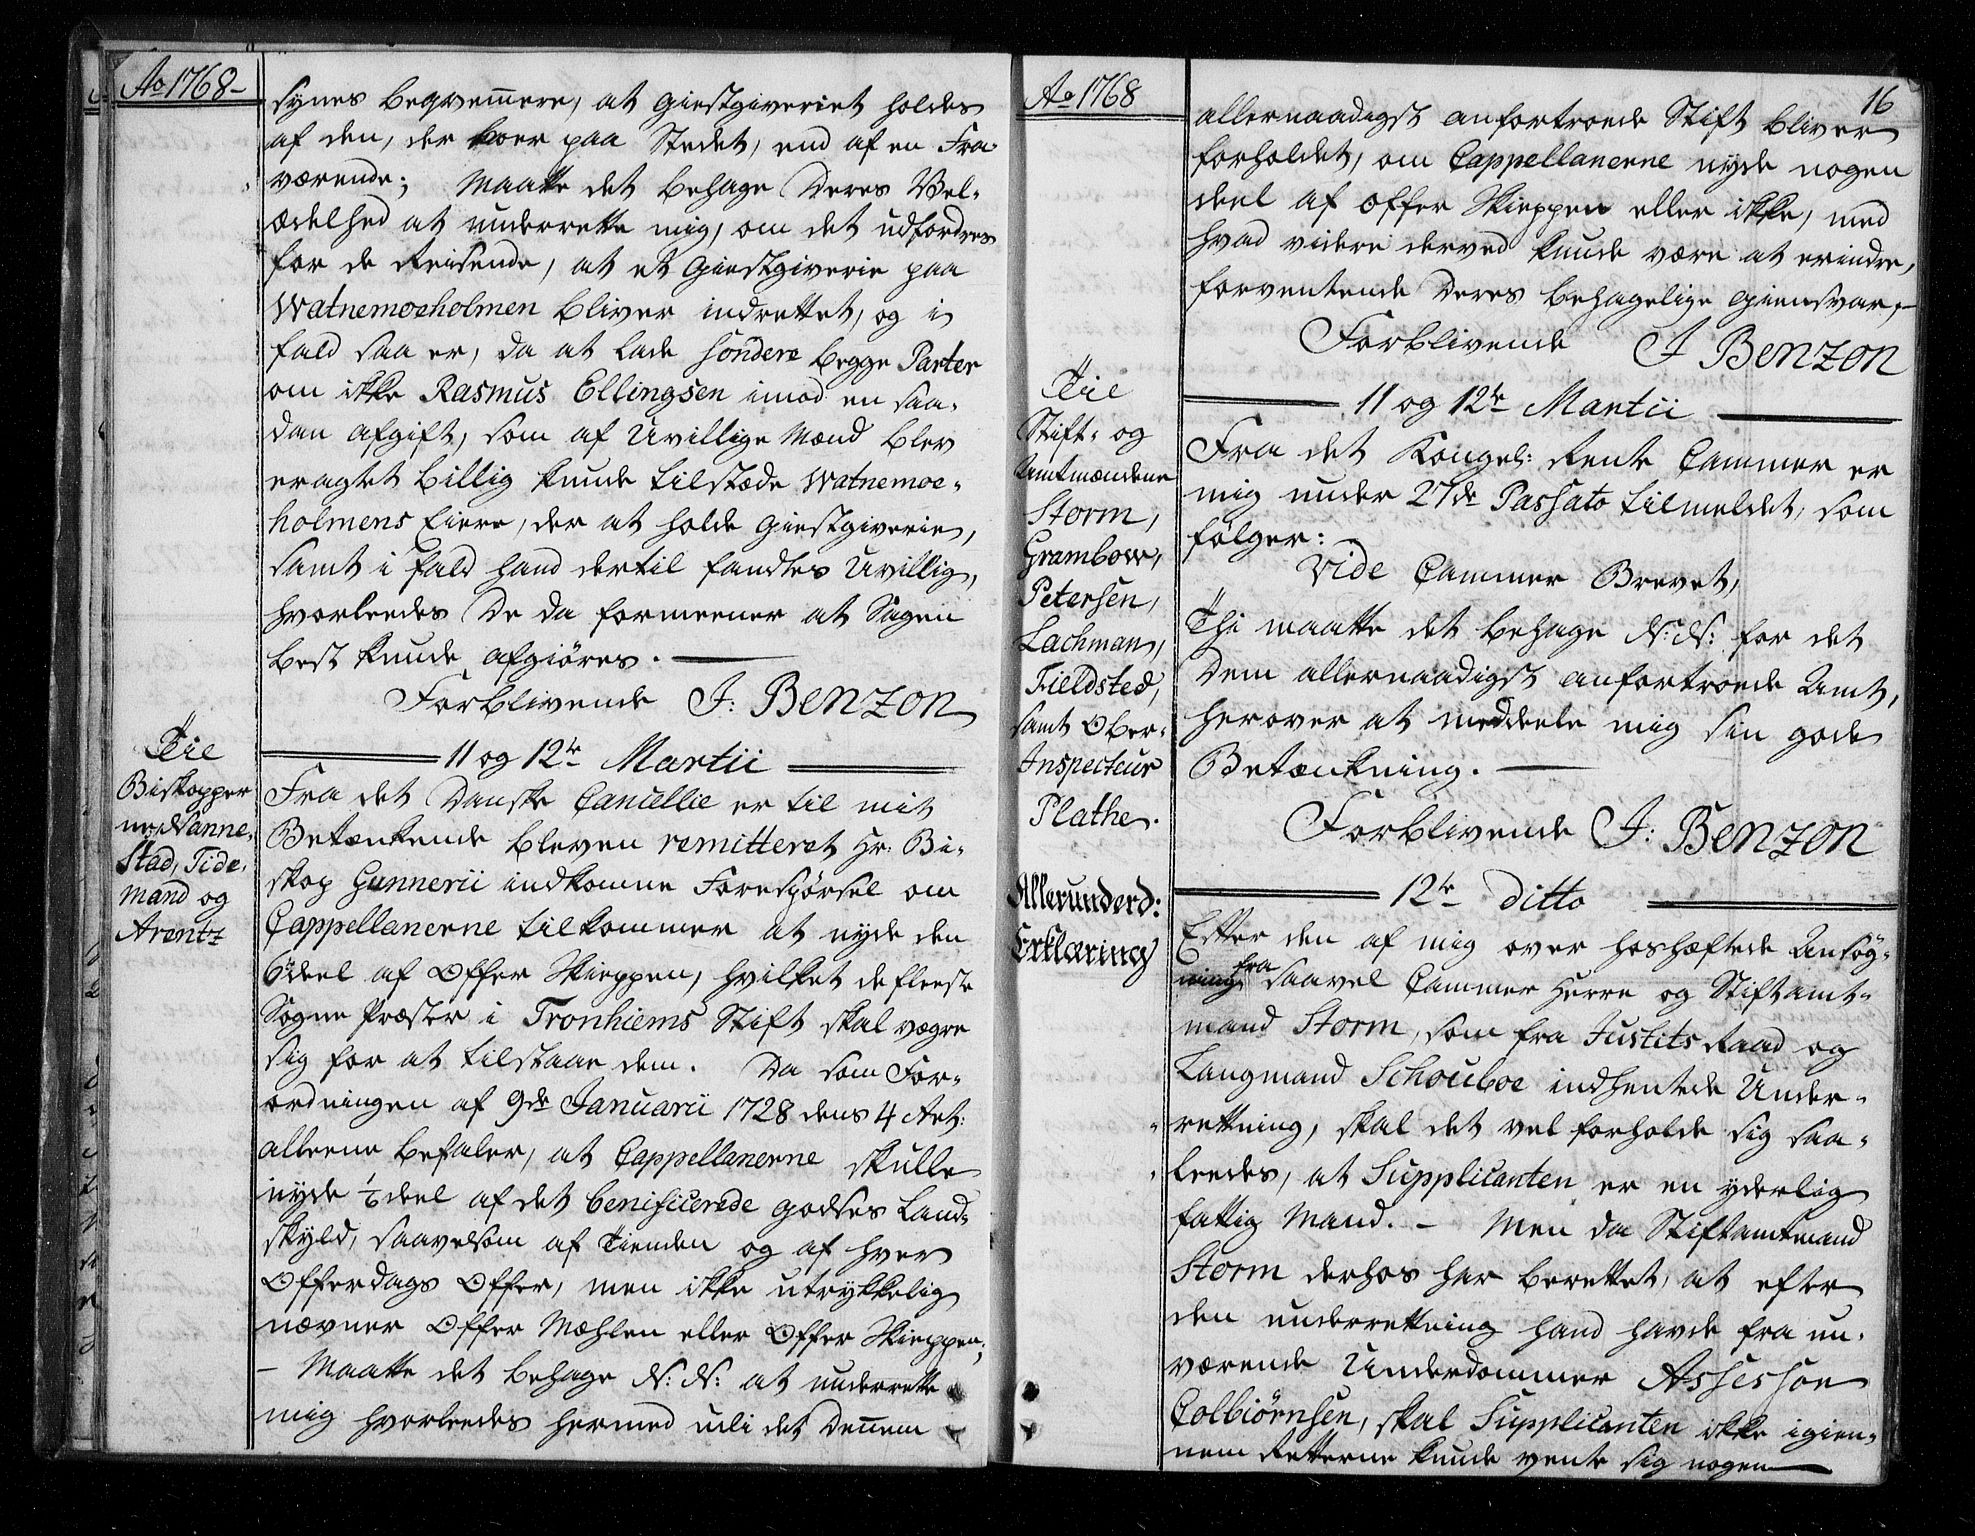 Ao 1768-
synes beqvemmere, at Giestgiveriet holdes
af den, der boer paa Stedet, end af en Fra-
værende; Maatte det behage Deres Vel-
ædelhed at underrette mig, om det udfordres
for de Reisende, at et Giestgiverie paa
Watnemoeholmen bliver indrettet, og i
fald saa er, da at lade sondere begge Parter
om ikke Rasmus Ellingsen imod en saa-
dan Afgift, som af Uvillige Mænd blev
eragtet billig kunde tilstæde Watnemoe-
holmens Eiere, der at holde Giestgiverie,
samt i fald hand dertil fandtes Uvillig,
hvorleedes De da formeener at Sagen
best kunde afgiøres.
Forblivende J: Benzon
Til
Biskopper
ne Nanne-
stad, Tide-
mand og
Arentz
11 og 12te Martii
Fra det Danske Cancellie er til mit
Betænkende bleven remitteret Hr: Bi-
skop Gunnerii indkomne Forespørsel om
Cappellanerne tilkommer at nyde den
6te deel af Offer Skieppen, hvilket de fleeste
Sogne Præster i Tronhiems Stift skal vægre
sig for at tilstaae dem. Da som For-
ordningen af 9de Januarii 1728 dens 4 Art:
alleene befaler, at Cappellanerne skulle
nyde 1/6 deel af det beneficerede Godses Land-
skyld, saavelsom af Tienden og af hver
Offerdags Offer, men ikke utrykkelig
nævner Offer Mæhlen eller Offer Skieppen;
- Maatte det behage N: N: at underrette
mig hvorleedes hermed udi det Dennem
Ao 1768
16
allernaadigst anfortroede Stift bliver
forholdet, om Cappellanerne nyde nogen
deel af Offer Skieppen eller ikke, med
hvad videre derved kunde være at erindre,
forventende Deres behagelige Giensvar,-
Forblivende J Benzon
Til
Stift- og
Amtmændene
Storm,
Grambow,
Petersen,
Lachman,
Fieldsted,
samt Ober-
Inspecteur
Plathe.
11 og 12te Martii
Fra det Kongel: Rente Cammer er
mig under 27de Passato tilmeldet, som
følger:
Vide Cammer Brevet,
Thi maatte det behage N: N: for det
Dem allernaadigst anfortroede Amt,
herover at meddeele mig sin gode
Betænkning.
Forblivende J: Benzon
Allerunderd:
Erklæring
12te ditto
Efter den af mig over hoshæftede Ansøg-
ning fra saavel Cammer Herre og Stiftamt-
mand Storm, som fra Justits Raad og
Laugmand Schouboe indhentede Under-
rettning, skal det vel forholde sig saa-
leedes, at Supplicanten er en yderlig
fattig Mand. - Men da Stiftamtmand
Storm derhos har berettet, at efter
den underrettning hand havde fra nu-
værende Underdommer Assessor
Colbiørnsen, skal Supplicanten ikke igien-
nem Retterne kunde vente sig nogen